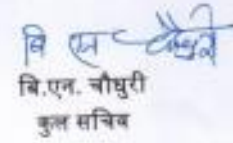 बि एन चौधुरी
बि.एन. चौधुरी
कुल सचिव